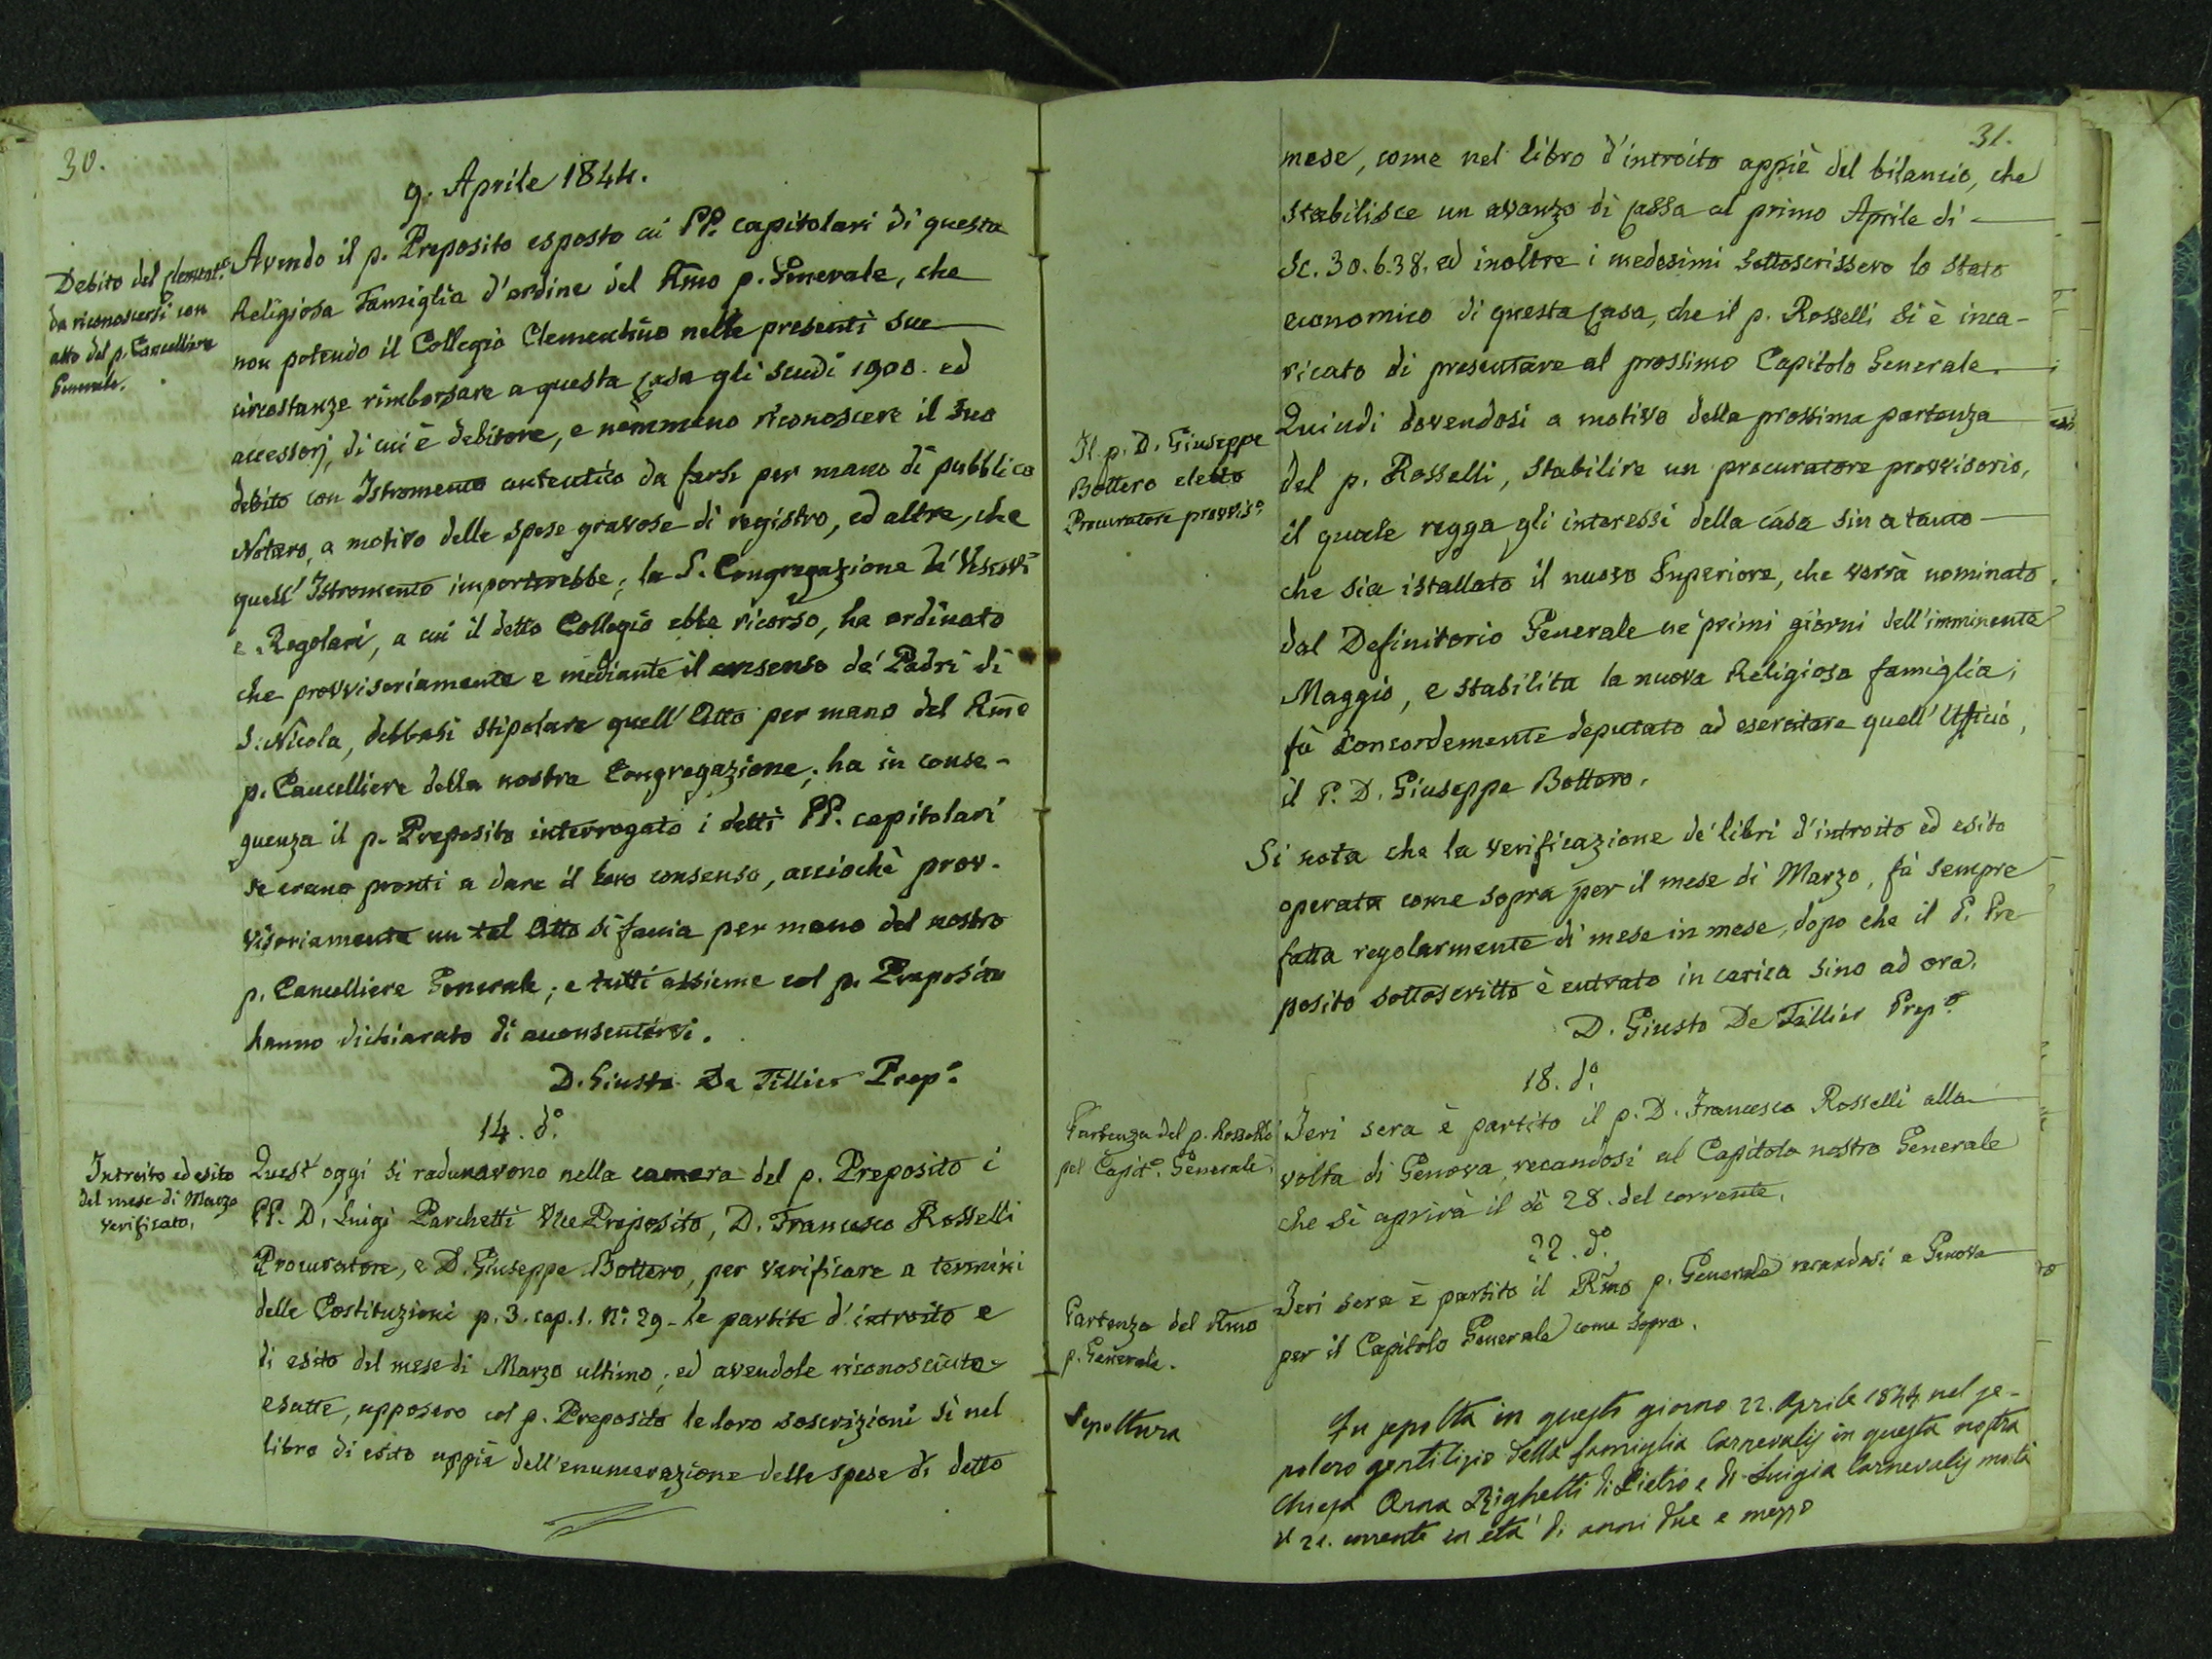 30.
9. Aprile 1844.
Debito del Clement.º
da riconoscersi con
atto del p. Cancelliere
Generale.
Avendo il p. Preposito esposto ai PP. capitolari di questa
Religiosa Famiglia d'ordine del Rmo p. Generale, che
non potendo il Collegio Clementino nelle presenti sue
circostanze rimborsare a questa casa gli scudi 1900. ed
accessorj, di cui è debitore, e nemmeno riconoscere il suo
debito con Istromento autentico da farsi per mano di pubblico
Notaro, a motivo delle spese gravose di registro, ed altre, che
quell'Istromento importerebbe; la S. Congregazione de' Vescovi
e Regolari, a cui il detto Collegio ebbe ricorso, ha ordinato
che provvisoriamente e mediante il consenso de' Padri di
S. Nicola, debbasi stipolare quell'Atto per mano del Rmo
p. Cancelliere della nostra Congregazione; ha in conse-
guenza il p. Preposito interrogato i detti PP. capitolari
se erano pronti a dare il loro consenso, acciochè prov-
visoriamente un tal Atto si faccia per mano del nostro
p. Cancelliere Generale; e tutti assieme col p. Preposito
hanno dichiarato di acconsentirvi.
D. Giusto De Tillier Prep.º
14. d.º
Introito ed esito
del mese di Marzo
verificato.
Quest'oggi si radunavono nella camera del p. Preposito i
PP. D. Luigi Parchetti Vice Preposito, D. Francesco Rosselli
Procuratore, e D. Giuseppe Bottero, per verificare a termini
delle Costituzioni p. 3. cap. 1. N.º 29. le partite d'introito e
di esito del mese di Marzo ultimo; ed avendole riconosciute
esatte, apposero col p. Preposito le loro soscrizioni sì nel
libro di esito appiè dell'enumerazione delle spese di detto
31.
mese, come nel libro d'introito appiè del bilancio, che
stabilisce un avanzo di cassa al primo Aprile di
Sc. 30.6.38. ed inoltre i medesimi sottoscrissero lo stato
economico di questa casa, che il p. Rosselli si è inca-
ricato di presentare al prossimo Capitolo Generale.
Il p. D. Giuseppe
Bottero eletto
Procuratore provvis.º
Quindi dovendosi a motivo della prossima partenza
del p. Rosselli, stabilire un procuratore provvisorio,
il quale regga gli interessi della casa sin a tanto
che sia istallato il nuovo Superiore, che verrà nominato
dal Definitorio Generale ne' primi giorni dell'imminente
Maggio, e stabilita la nuova Religiosa famiglia;
fù concordemente deputato ad esercitare quell'Ufficio,
il P. D. Giuseppe Bottero.
Si nota che la verificazione de' libri d'introito ed esito
operata come sopra per il mese di Marzo, fù sempre
fatta regolarmente di mese in mese, dopo che il P. Pre-
posito sottoscritto è entrato in carica sino ad ora.
D. Giusto De Tillier Prep.º
18. d.º
Partenza del p. Rosselli
pel Capit.º Generale.
Ieri sera è partito il p. D. Francesco Rosselli alla
volta di Genova, recandosi al Capitolo nostro Generale
che si aprirà il dì 28. del corrente.
22. d.º
Partenza del Rmo
p. Generale.
Ieri sera è partito il Rmo p. Generale recandosi a Genova
per il Capitolo Generale come sopra.
Sepoltura
Fu sepolta in questo giorno 22. Aprile 1844 nel se-
polcro gentilizio della famiglia Carnevalis in questa nostra
Chiesa Anna Righetti di Pietro e di Luigia Carnevalis morta
il 21. corrente in età di anni due e mezzo